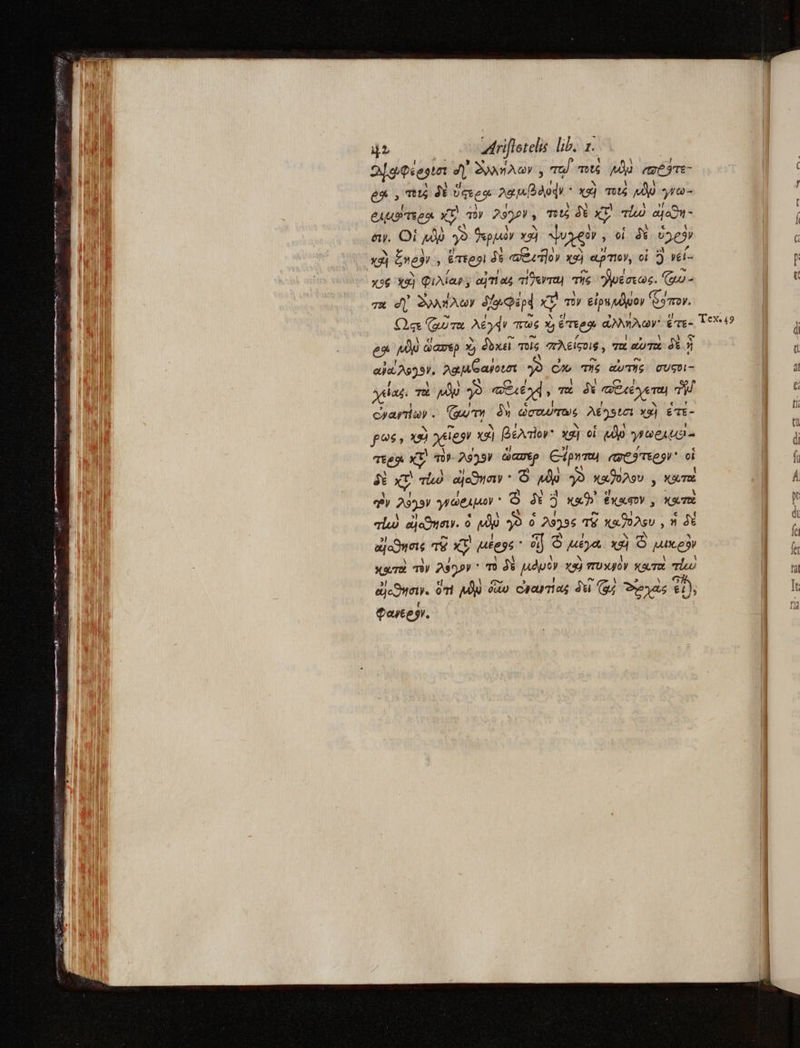 42 Aristotelis lib. 1.
διαφέρουσι δ' ἀλλήλων, τῷ τοὺς μὲν πρότε-
ρα, τοὺς δὲ ὕστερα λαμβάνειν· καὶ τοὺς μὲν γνω-
ριμώτερα κατὰ τὸν λόγον, τοὺς δὲ κατὰ τὴν αἴσθη-
σιν. Οἱ μὲν γὰρ θερμὸν καὶ ψυχρὸν, οἱ δὲ ὑγρὸν
καὶ ξηρὸν, ἕτεροι δὲ περιττὸν καὶ ἄρτιον, οἱ δὲ νεῖ-
κος καὶ φιλίαν, αἰτίας τίθενται τῆς γενέσεως. ταῦ-
τα δ' ἀλλήλων διαφέρει κατὰ τὸν εἰρημένον τρόπον.
Ὥστε ταῦτα λέγειν πως καὶ ἕτερα ἀλλήλων· ἕτε- Tex. 49
ρα μὲν ὥσπερ καὶ δοκεῖ τοῖς πλείστοις, τὰ αὐτὰ δὲ ᾗ
ἀνάλογον. λαμβάνουσι γὰρ ἐκ τῆς αὐτῆς συστοι-
χείας. τὰ μὲν γὰρ περιέχει, τὰ δὲ περιέχεται τῶν
ἐναντίων. ταύτῃ δὴ ὡσαύτως λέγουσι καὶ ἑτέ-
ρως, καὶ χεῖρον καὶ βέλτιον· καὶ οἱ μὲν γνωριμώ-
τερα κατὰ τὸν λόγον ὥσπερ εἴρηται πρότερον· οἱ
δὲ κατὰ τὴν αἴσθησιν· τὸ μὲν γὰρ καθόλου, κατὰ
τὸν λόγον γνώριμον· τὸ δὲ καθ' ἕκαστον, κατὰ
τὴν αἴσθησιν. ὁ μὲν γὰρ ὁ λόγος τοῦ καθόλου, ἡ δὲ
αἴσθησις τοῦ κατὰ μέρος· οἷον τὸ μέγα καὶ τὸ μικρὸν
κατὰ τὸν λόγον· τὸ δὲ μανὸν καὶ πυκνὸν κατὰ τὴν
αἴσθησιν. ὅτι μὲν οὖν ἐναντίας δεῖ τὰς ἀρχὰς εἶναι,
φανερόν.